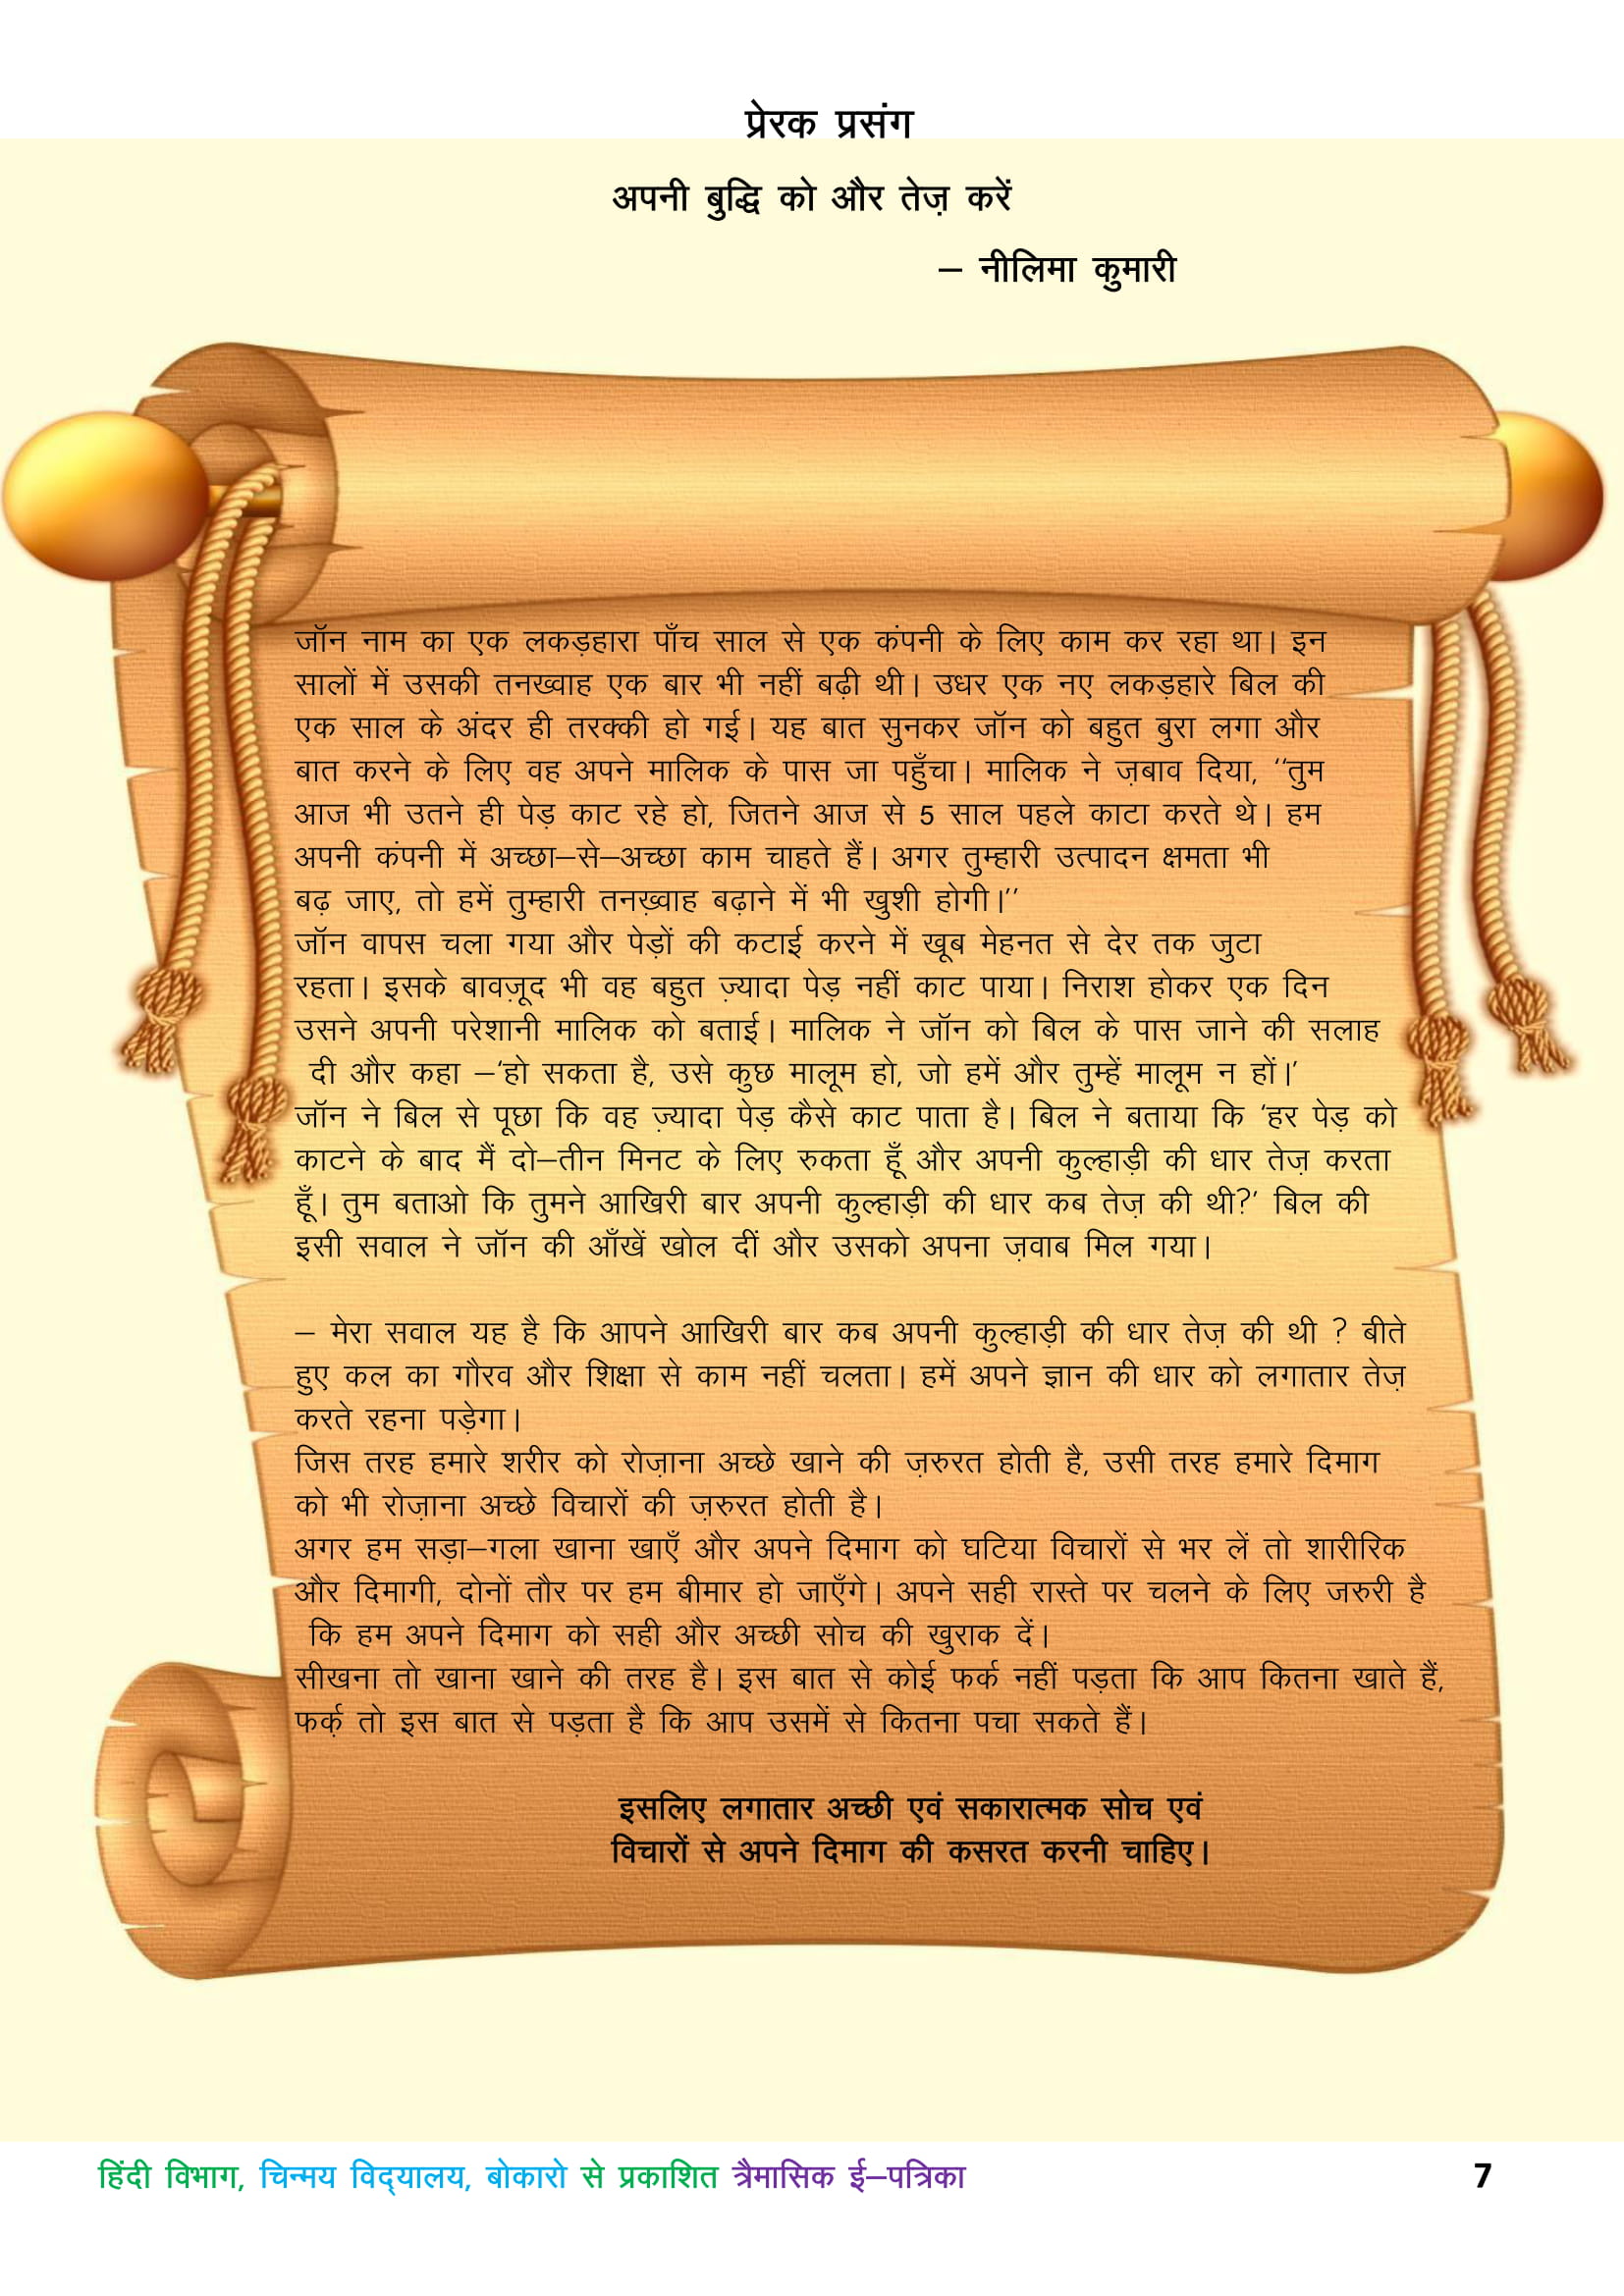 प्रेरक प्रसंग
अपनी बुद्धि को और तेज़ करें
– नीलिमा कुमारी
जॉन नाम का एक लकड़हारा पाँच साल से एक कंपनी के लिए काम कर रहा था। इन
सालों में उसकी तनख्वाह एक बार भी नहीं बढ़ी थी। उधर एक नए लकड़हारे बिल की
एक साल के अंदर ही तरक्की हो गई। यह बात सुनकर जॉन को बहुत बुरा लगा और
बात करने के लिए वह अपने मालिक के पास जा पहुँचा। मालिक ने ज़बाव दिया, ‘‘तुम
आज भी उतने ही पेड़ काट रहे हो, जितने आज से 5 साल पहले काटा करते थे। हम
अपनी कंपनी में अच्छा–से–अच्छा काम चाहते हैं। अगर तुम्हारी उत्पादन क्षमता भी
बढ़ जाए, तो हमें तुम्हारी तनख़्वाह बढ़ाने में भी खुशी होगी।’’
जॉन वापस चला गया और पेड़ों की कटाई करने में खूब मेहनत से देर तक जुटा
रहता। इसके बावज़ूद भी वह बहुत ज़्यादा पेड़ नहीं काट पाया। निराश होकर एक दिन
उसने अपनी परेशानी मालिक को बताई। मालिक ने जॉन को बिल के पास जाने की सलाह
दी और कहा –‘हो सकता है, उसे कुछ मालूम हो, जो हमें और तुम्हें मालूम न हों।’
जॉन ने बिल से पूछा कि वह ज़्यादा पेड़ कैसे काट पाता है। बिल ने बताया कि ‘हर पेड़ को
काटने के बाद मैं दो–तीन मिनट के लिए रुकता हूँ और अपनी कुल्हाड़ी की धार तेज़ करता
हूँ। तुम बताओ कि तुमने आखिरी बार अपनी कुल्हाड़ी की धार कब तेज़ की थी?’ बिल की
इसी सवाल ने जॉन की आँखें खोल दीं और उसको अपना ज़वाब मिल गया।
– मेरा सवाल यह है कि आपने आखिरी बार कब अपनी कुल्हाड़ी की धार तेज़ की थी ? बीते
हुए कल का गौरव और शिक्षा से काम नहीं चलता। हमें अपने ज्ञान की धार को लगातार तेज़
करते रहना पड़ेगा।
जिस तरह हमारे शरीर को रोज़ाना अच्छे खाने की ज़रुरत होती है, उसी तरह हमारे दिमाग
को भी रोज़ाना अच्छे विचारों की ज़रुरत होती है।
अगर हम सड़ा–गला खाना खाएँ और अपने दिमाग को घटिया विचारों से भर लें तो शारीरिक
और दिमागी, दोनों तौर पर हम बीमार हो जाएँगे। अपने सही रास्ते पर चलने के लिए जरुरी है
कि हम अपने दिमाग को सही और अच्छी सोच की खुराक दें।
सीखना तो खाना खाने की तरह है। इस बात से कोई फर्क नहीं पड़ता कि आप कितना खाते हैं,
फर्क़ तो इस बात से पड़ता है कि आप उसमें से कितना पचा सकते हैं।
इसलिए लगातार अच्छी एवं सकारात्मक सोच एवं
विचारों से अपने दिमाग की कसरत करनी चाहिए।
हिंदी विभाग, चिन्मय विद्‌यालय, बोकारो से प्रकाशित त्रैमासिक ई–पत्रिका 7